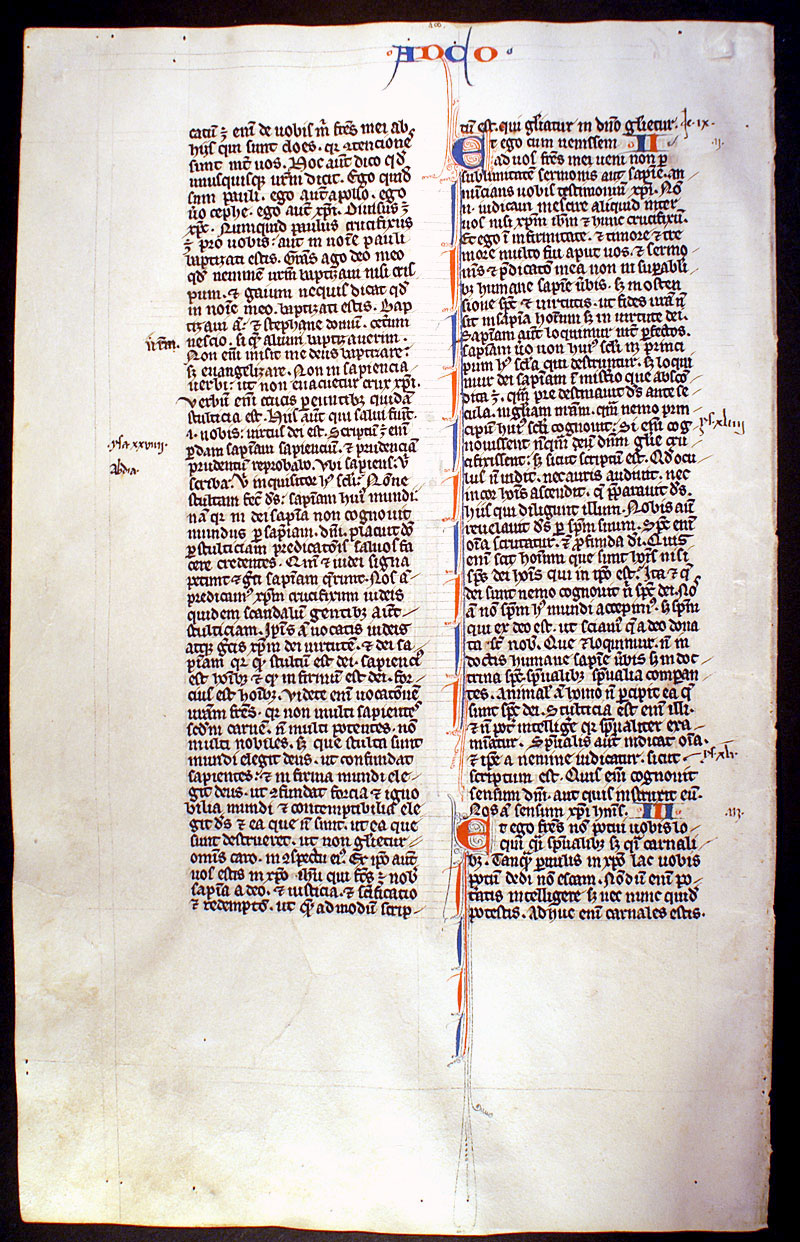 A D C O
catũ ꝫ enĩ de uobis m̃ fr̃es mei ab
hijs qui sunt cloes. qꝛ ↄtenciones
sunt int̃ uos. Hoc aut̃ dico qđ
unusquisqꝫ ur̃m dicit. Ego quid̃
sum pauli. ego aut̃ apollo. ego
ũo cephe. ego aut̃ xp̃i. Diuisus ꝫ
xp̃c. Numquid paulus crucifixus
ꝫ pro uobis: aut in noĩe pauli
baptizati estis. Gr̃as ago deo meo
qđ neminem ur̃m baptizaui nisi cris
pum. ⁊ gaium nequis dicat qđ
in noĩe meo. baptizati estis. Bap
tizaui ã: ⁊ stephane domũ. cet̃um
nescio. si qͣ alium baptizauerim.
Non enĩ misit me deus baptizare:
sꝫ euangelizare. Non in sapiencia
uerbi: ut non euacuetur crux xp̃i.
Verbũ enĩ crucis pereuntibꝫ quidã
stulticia est. Hijs aut̃ qui salui fiũt.
.i. nobis: uirtus dei est. Scriptũ ꝫ enĩ
ꝑdam sapiam̃ sapiencium. ⁊ prudenciã
prudentiũ reprobabo. Vbi sapiens: ũ
scriba: ũ inquisitor hꝰ sclĩ: Nõne
stultam fec̃ ds̃: sapiãm huiꝰ mundi:
nã qꝛ in dei sapĩa non cognouit
mundus ꝑ sapiam̃. dm̃. placuit dõ
ꝑ stulticiam predicacõis saluos fa
cere credentes. Qm̃ ⁊ iudei signa
petunt ⁊ gr̃i sapiãm q̃runt. Nos ã
predicamꝰ xp̃m crucifixum iudeis
quidem scandalũ gentibꝫ aũt
stulticiam. Ip̃is ã uocatis iudeis
atqꝫ gr̃cis xp̃m dei uirtutẽ. ⁊ dei sa
piãm qꝛ qͥ stultũ est dei. sapienciꝰ
est hoĩbꝫ ⁊ qͥ infirmũ est dei. for
cius est hoĩbꝫ. Videte enĩ uocationẽ
ur̃am fr̃es. qꝛ non multi sapientes
scđm carnẽ. ñ multi potentes. nõ
multi nobiles. sꝫ que stulta sunt
mundi elegit deus. ut confundat
sapientes: ⁊ infirma mundi ele
git deus. ut ↄfundat forcia ⁊ igno
bilia mundi ⁊ contemptibilia ele
git ds̃ ⁊ ea que ñ sunt. ut ea que
sunt destrueret. ut non glietur
omĩs caro. in ↄspectu eiꝰ. Ex ip̃o aut̃
uos estis in xp̃o ihũ qui fc̃s ꝫ nob̃
sapia a deo. ⁊ iusticia. ⁊ sc̃ificatio
⁊ redempto. ut qͥ admodũ scrip
ur̃m.
ysa. xxviiij.
Abdia.
tũ est. qui gliatur in dño glietur. Je. ix.
Et ego cum uenissem II
ad uos fr̃es mei ueni non ꝑ
sublimitatẽ sermonis aut sapie. an
nuncians uobis testimoniũ xp̃i. Nõ
ñ. iudicaui me scire aliquid inter
uos nisi xp̃m ihm̃ ⁊ hunc crucifixũ.
Et ego ĩ infirmitate. ⁊ timore ⁊ tre
more multo fui aput uos. ⁊ sermo
mꝰs ⁊ p̃dicatõ mea non in suꝑabili
bꝫ humane sapiẽ ũbis. sꝫ in osten
sione sp̃c ⁊ uirtutis. ut fides ur̃a ñ
sit in sapĩa hoĩum sꝫ in uirtute dei.
Sapiãm aut̃ loquimur int̃ ꝑfectos.
sapiãm ũo non huiꝰ sclĩ nꝫ princi
pum hꝰ sclĩ qui destruuntur. sꝫ loqui
mur dei sapiam ĩ mist̃io que absco
dita ꝫ. qm̃ pre destinauit ds̃ ante se
cula. in gliam nr̃am. qm̃ nemo prin
cipiũ huiꝰ sclĩ cognouit: Si enĩ cog
nouissent nũqm̃ deũ dñm glie cru
cifixissent: sꝫ sicut scriptũ est. Qđ ocu
lus ñ uidit. nec auris audiuit. nec
in cor hoĩs ascendit. q̃ p̃parauit ds̃.
hijs qui diligunt illum. Nobis aut̃
reuelauit ds̃ ꝑ sp̃m suum. Sp̃c enĩ
oĩa scrutatur. ⁊ ꝓfunda dĩ. Quis
enĩ scit hoĩum que sunt hoĩs nisi
sp̃c dei hoĩs qui in ip̃o est. Ita ⁊ q̃
dei sunt nemo cognouit n̄ sp̃c dei. Nõ
ã nõ sp̃m hꝰ mundi accepimꝰ. sꝫ sp̃m
qui ex deo est. ut sciamꝰ q̃ a deo dona
ta st̃ nob̃. Que ⁊ loquimur. ñ in
doctis humane sapiẽ ũbis sꝫ in doc
trina sp̃c. sp̃ualibꝫ sp̃ualia compan
tes. Animal̃ ã homo ñ ꝑcipit ea q̃
sunt sp̃c dei. Stulticia est enĩ illi.
⁊ ñ pot̃ intellige qꝛ sp̃ualiter exa
minatur. Sp̃ualis aut̃ iudicat oĩa.
⁊ ip̃e a nemine iudicatur. sicut
scriptum est. Quis enĩ cognouit
sensum dñi. aut quis instruxit eũ.
Nos ã sensum xp̃i hm̃s. III
Et ego fr̃es nõ potui uobis lo
qui qͣi sp̃ualibꝫ sꝫ qͣi carnali
bꝫ. Tanqͣ ꝑuulis in xp̃o lac uobis
potũ dedi nõ escam. Nõdũ enĩ po
tatis intelligere sꝫ nec nunc quid̃
potestis. Adhuc enĩ carnales estis.